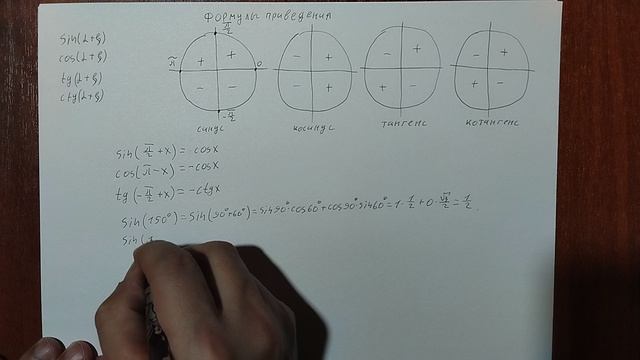 Формулы приведения
sin(α+β)
cos(α+β)
tg(α+β)
ctg(α+β)
π/2
+ +
π 0
- -
-π/2
синус
- +
- +
косинус
- +
+ -
тангенс
- +
+ -
котангенс
sin(π/2+x)= cosx
cos(π-x)=-cosx
tg(-π/2+x)=-ctgx
sin(150°)=sin(90°+60°)=sin90°·cos60°+cos90°·sin60°=1·1/2+0·√3/2=1/2.
sin(1